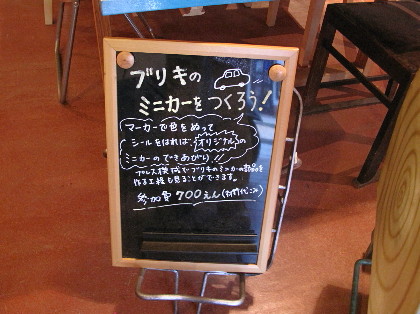 ブリキの
ミニカーをつくろう!
マーカーで色をぬって
シールをはれば、オリジナルの
ミニカーのできあがり!!
プレス機械でブリキのミニカーの部品を
作る工程も見ることができます。
参加費700えん(材料代こみ)